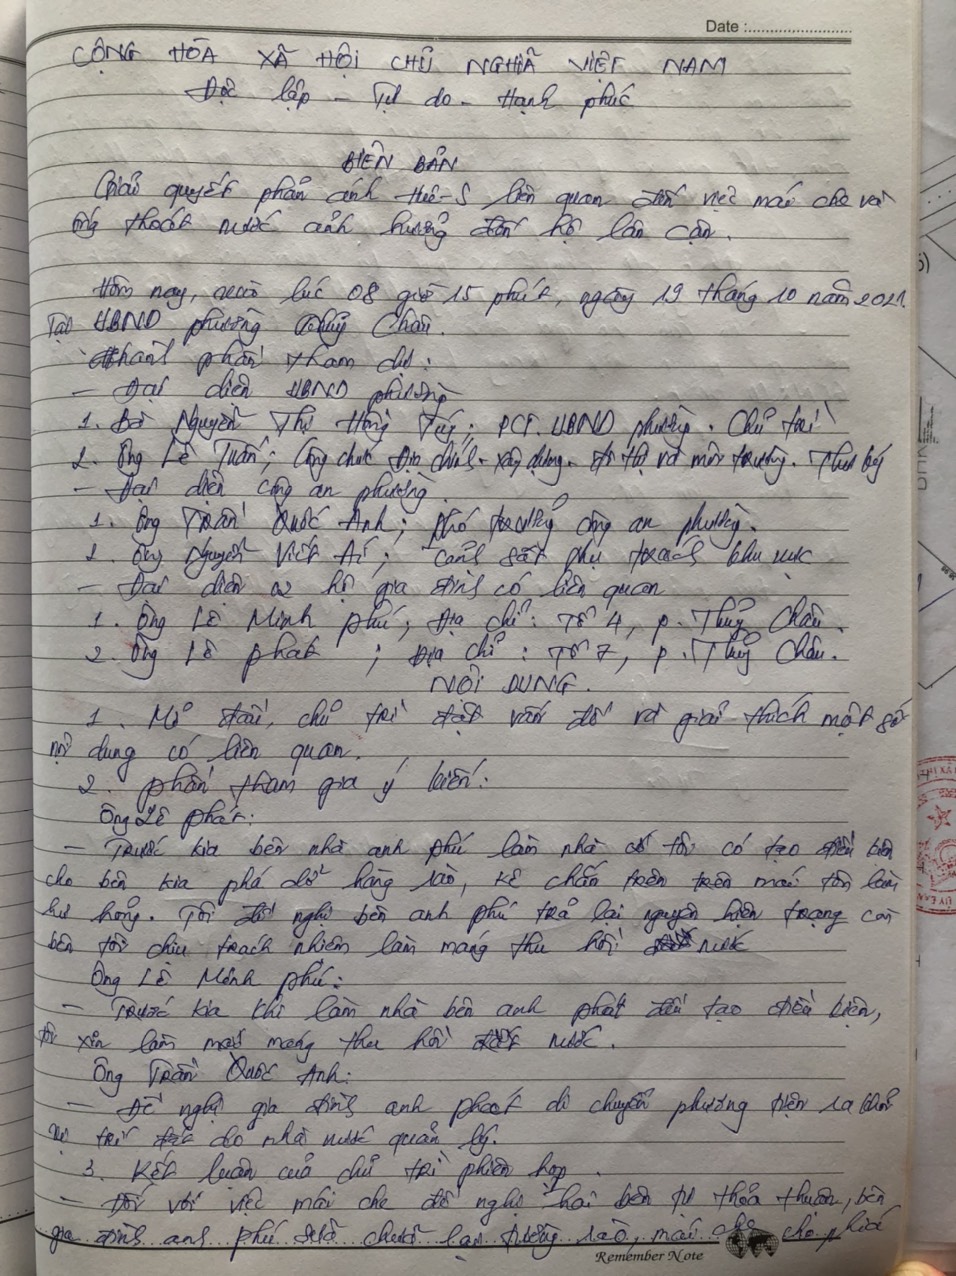 Date :
CỘNG HÒA XÃ HỘI CHỦ NGHĨA VIỆT NAM
Độc lập - Tự do - Hạnh phúc
BIÊN BẢN
Giải quyết phản ánh Huế-S liên quan đến việc mái che và
ống thoát nước ảnh hưởng đến hộ lân cận.
Hôm nay, vào lúc 08 giờ 15 phút, ngày 19 tháng 10 năm 2021
Tại UBND phường Thủy Châu.
Thành phần tham dự:
- Đại diện UBND phường
1. Bà Nguyễn Thị Hồng Tuý; PCT. UBND phường. Chủ trì
2. Ông Lê Tuấn; Công chức Địa chính - xây dựng - đô thị và môi trường. Thư ký
- Đại diện công an phường
1. Ông Trần Quốc Anh; phó trưởng công an phường.
2. Ông Nguyễn Viết Ái; cảnh sát phụ trách khu vực
- Đại diện 02 hộ gia đình có liên quan
1. Ông Lê Minh Phú; Địa chỉ: Tổ 4, p. Thủy Châu.
2. Ông Lê Phát; Địa chỉ: Tổ 7, p. Thủy Châu.
NỘI DUNG.
1. Mở đầu, chủ trì đặt vấn đề và giải thích một số
nội dung có liên quan.
2. Phần tham gia ý kiến:
Ông Lê Phát:
- Trước kia bên nhà anh Phú làm nhà tôi có tạo điều kiện
cho bên kia phá dỡ hàng rào, kê chắn trên mái tôn làm
hư hỏng. Tôi đề nghị bên anh Phú trả lại nguyên hiện trạng còn
bên tôi chịu trách nhiệm làm máng thu hồi nước
Ông Lê Minh Phú:
- Trước kia khi làm nhà bên anh Phát đều tạo điều kiện,
tôi xin làm máng thu hồi nước.
Ông Trần Quốc Anh:
- Đề nghị gia đình anh Phát di chuyển phương tiện ra khỏi
vị trí do nhà nước quản lý.
3. Kết luận của chủ trì phiên họp.
- Đối với việc mái che đề nghị hai bên tự thỏa thuận, bên
gia đình anh Phú sửa chữa lại tường rào, mái che cho phía
Remember Note